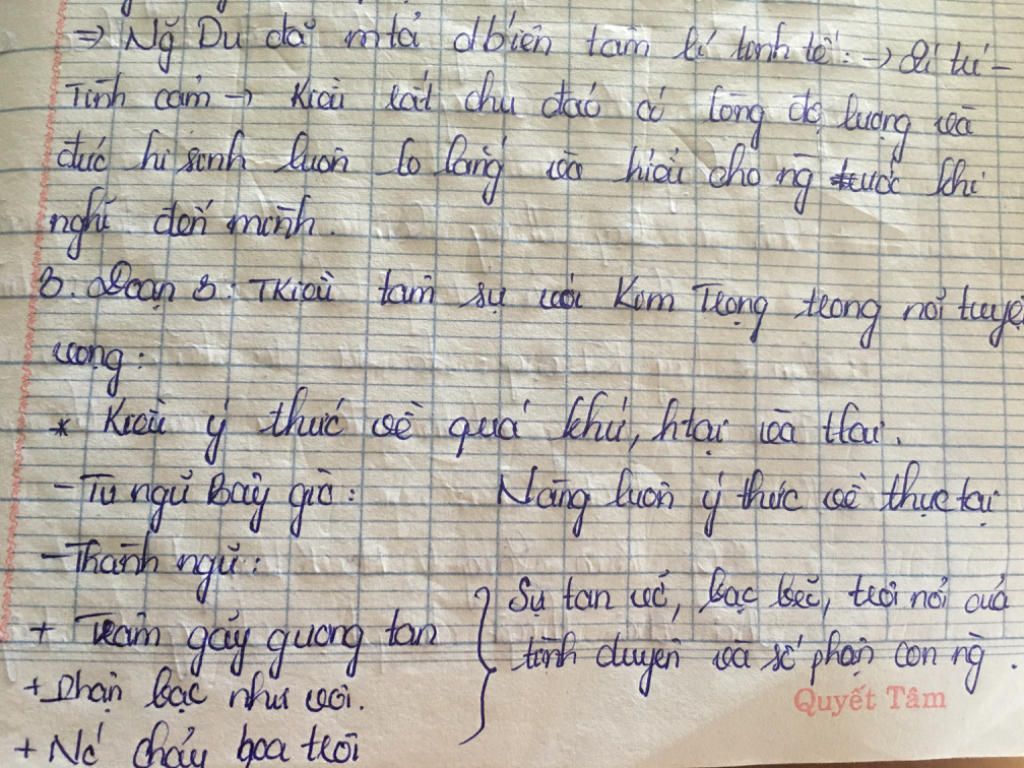 ⇒ Ng Du đã mtả dbiến tâm lí tinh tế: → lí trí -
Tình cảm → Kiều rất chu đáo có lòng độ lượng và
đức hi sinh luôn lo lắng và hiểu cho ng trước khi
nghĩ đến mình.
3. Đoạn 3: TKiều tâm sự với Kim Trọng trong nỗi tuyệ
vọng:
* Kiều ý thức về quá khứ, htại và tlai.
- Từ ngữ Bây giờ: Nàng luôn ý thức về thực tại
- Thành ngữ:
+ Trâm gãy gương tan } Sự tan vỡ, bạc bẽo, trôi nổi của
+ Phận bạc như vôi. tình duyên và số phận con ng.
Quyết Tâm
+ Nc chảy hoa trôi